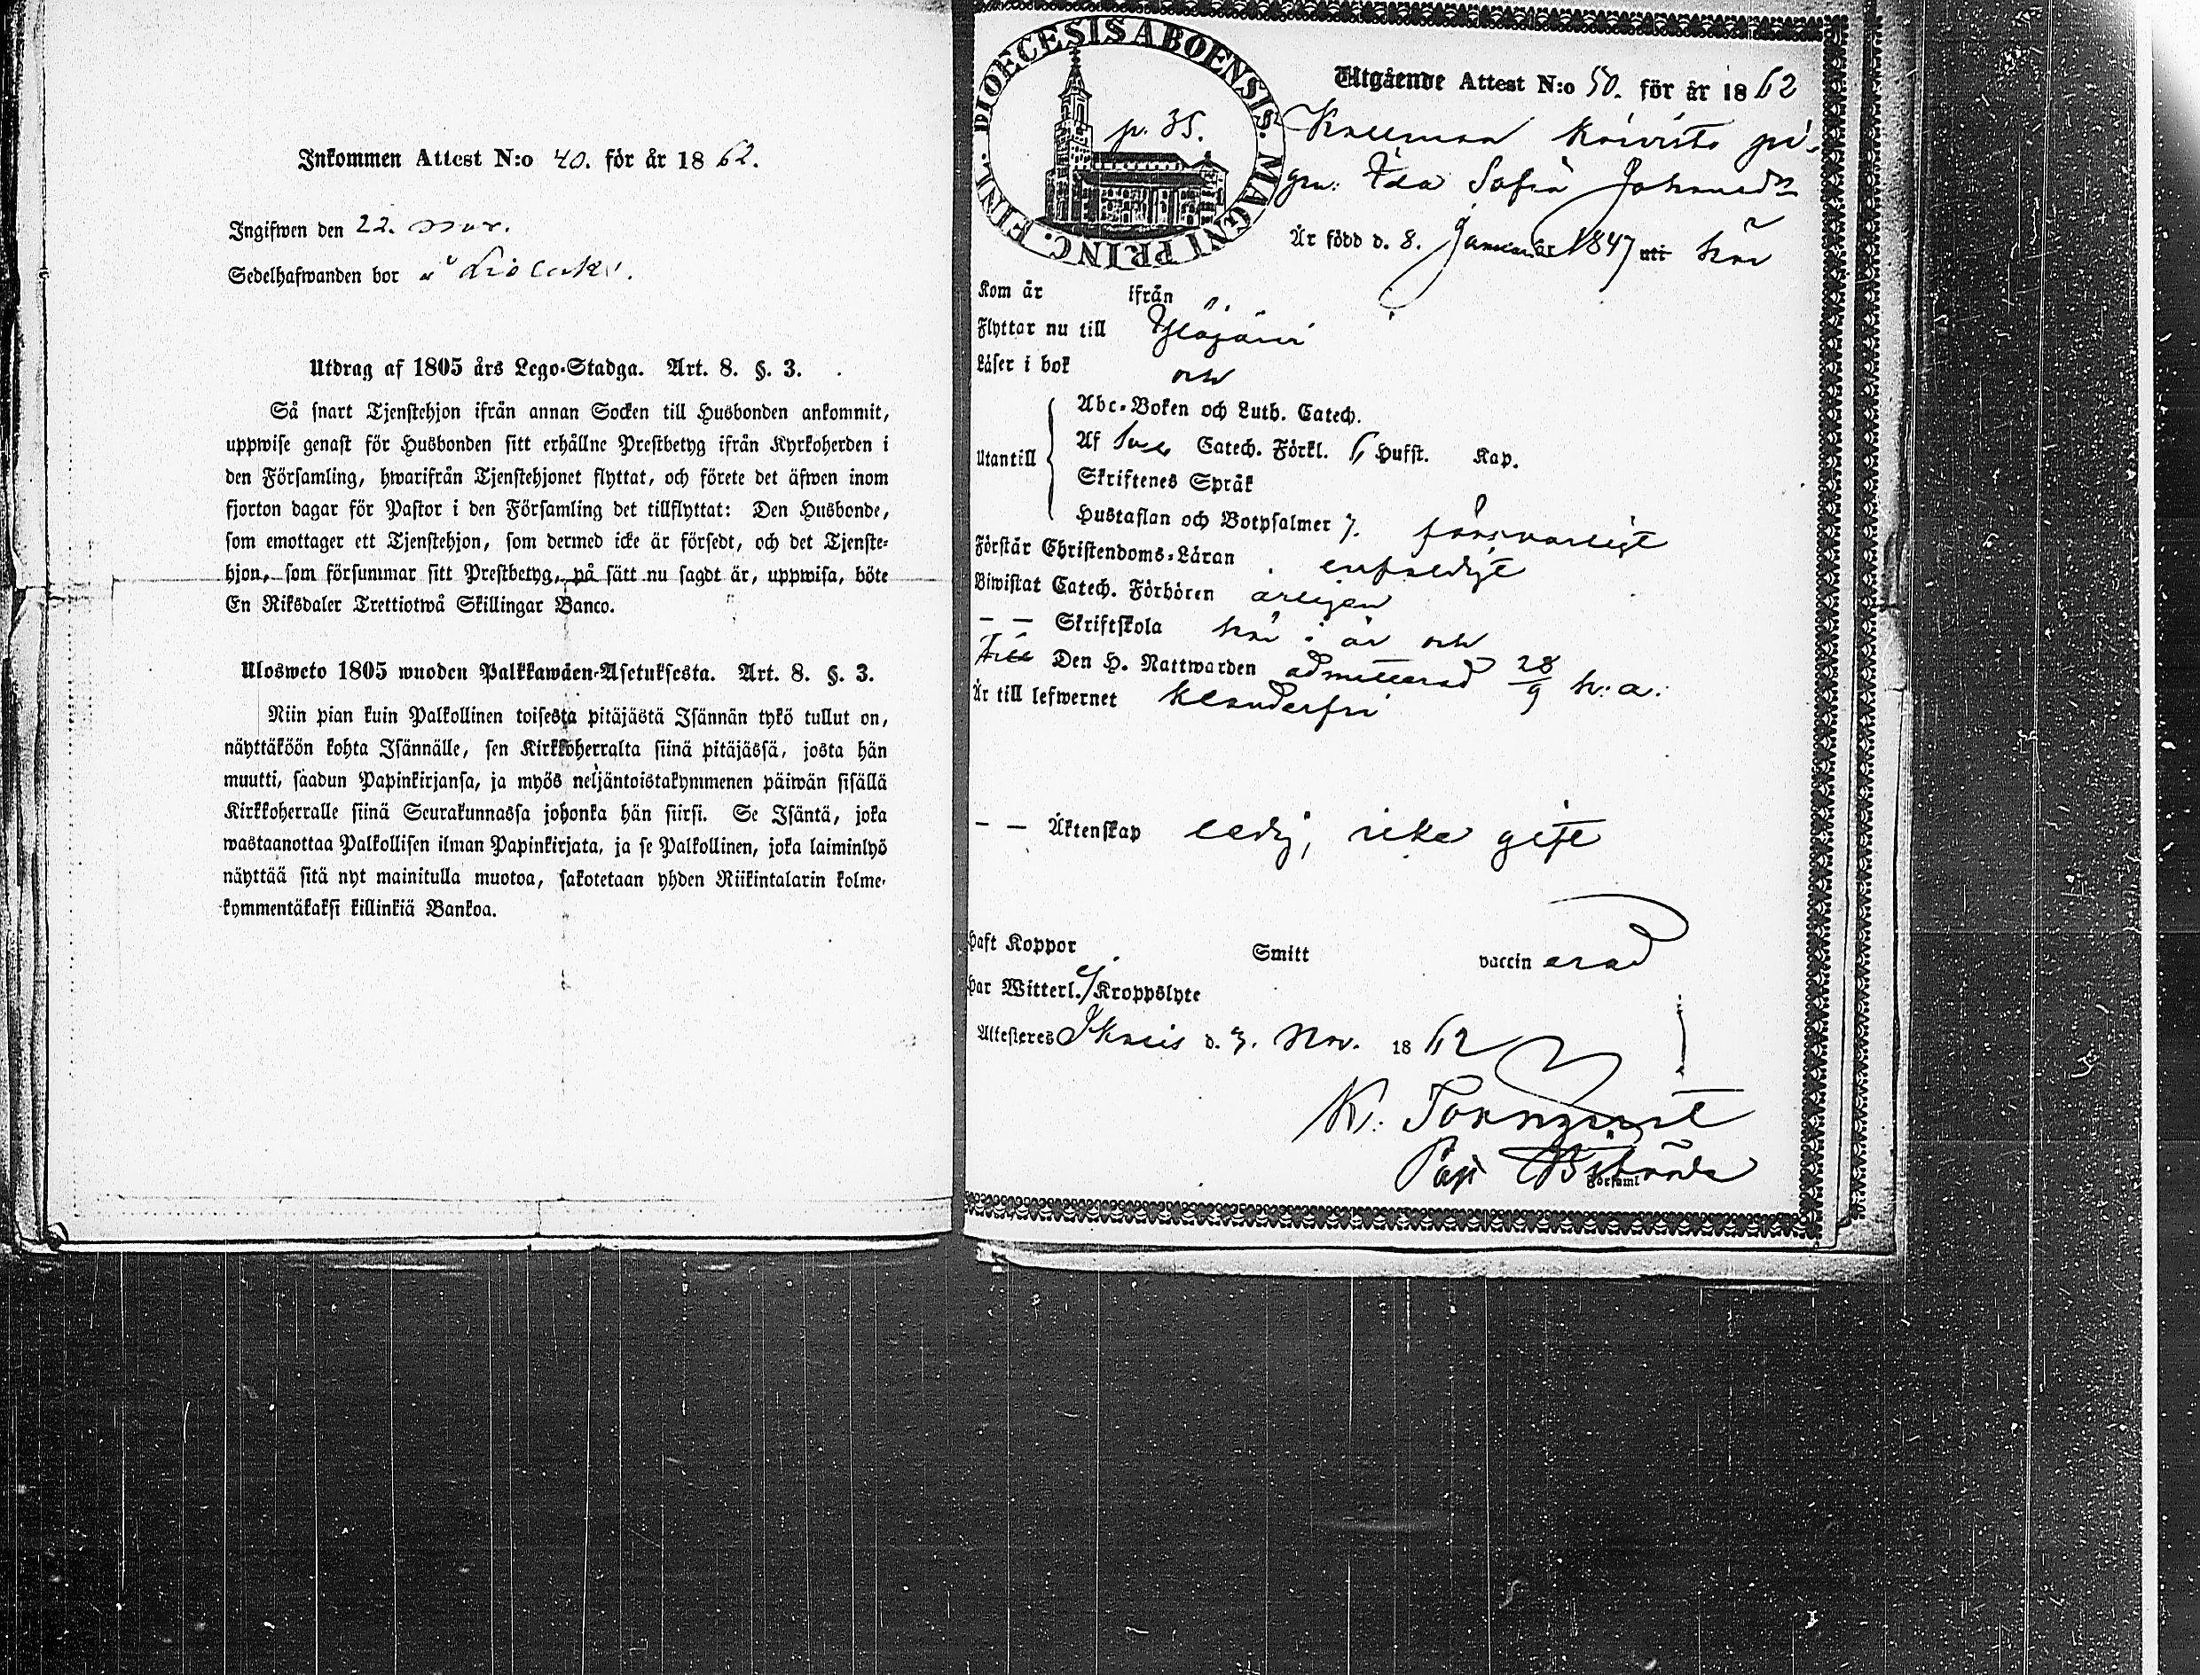 Inkommen Attest N:o 40. för år 1862.
Ingifwen den 22. nov.
Sedelhafwanden bor å
Utdrag af 1805 års Lego-Stadga. Art. 8. §. 3.
Så snart Tjenstehjon ifrån annan Socken till Husbonden ankommit,
uppwise genast för Husbonden sitt erhållne Prestbetyg ifrån Kyrkoherden i
den Församling, hwarifrån Tjenstehjonet flyttat, och förete det äfwen inom
fjorton dagar för Pastor i den Församling det tillflyttat: Den Husbonde,
som emottager ett Tjenstehjon, som dermed icke är försedt, och det Tjenste-
hjon, som försummar sitt Prestbetyg, på sätt nu sagdt är, uppwisa, böte
En Riksdaler Trettiotwå Skillingar Banco.
Ulosweto 1805 wuoden Palkkawäen-Asetuksesta. Art. 8. §. 3.
Niin pian kuin Palkollinen toisesta pitäjästä Isännän tykö tullut on,
näyttäköön kohta Isännälle, sen Kirkkoherralta siinä pitäjässä, josta hän
muutti, saadun Papinkirjansa, ja myös neljäntoistakymmenen päiwän sisällä
Kirkkoherralle siinä Seurakunnassa johonka hän siirsi. Se Isäntä, joka
wastaanottaa Palkollisen ilman Papinkirjata, ja se Palkollinen, joka laiminlyö
näyttää sitä nyt mainitulla muotoa, sakotetaan yhden Riikintalarin kolme-
kymmentäkaksi killinkiä Bankoa.
DIOECESIS ABOENSIS. MAGNI PRINC. FINL.
p. 35.
Utgående Attest N:o 50. för år 1862
Koivisto pi-
gan: Ida Sofia Johansdr
Är född d. 8. Januari 1847 uti här
Kom år ifrån
Flyttar nu till Ylöjärvi
Läser i bok och
Utantill
Abc-Boken och Luth. Catech.
Af Sveb. Catech. Förkl. 6 Hufst. Kap.
Skriftenes Språk
Hustaflan och Botpsalmer 7. försvarligt
Förstår Christendoms-Läran enfaldigt
Biwistat Catech. Förhören årligen
— — Skriftskola här i år och
till Den H. Nattwarden admitterad 28/9 h: a:
Är till lefwernet klanderfri
— — Äktenskap ledig, icke gift
Haft Koppor Smitt vaccinerad
Har Witterl. ej Kroppslyte
Attesteras Ikalis d. 3. Nov. 1862
K. Tornqvist
Församl